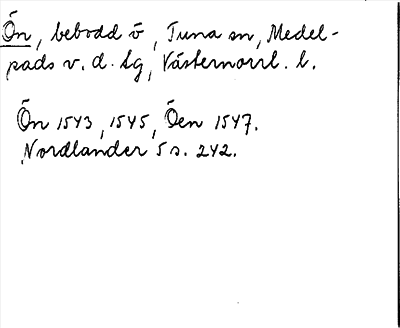 Ön, bebodd ö, Tuna sn, Medel-
pads v. d. tg, Västernorrl. l.
Ön 1543, 1545, Öen 1547.
Nordlander 5 s. 242.